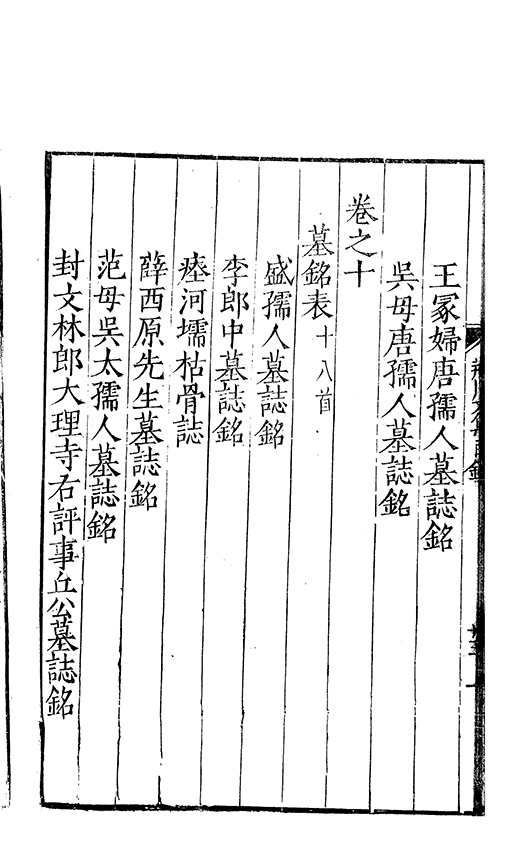 王冢婦唐孺人墓誌銘
吳母唐孺人墓誌銘
卷之十
墓銘表十八首
盛孺人墓誌銘
李郎中墓誌銘
瘞河壖枯骨誌
薛西原先生墓誌銘
范母吳太孺人墓誌銘
封文林郎大理寺右評事丘公墓誌銘